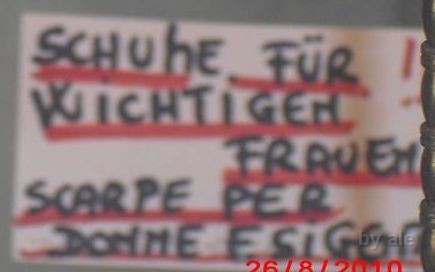 SCHUhE FÜR !
WICHTIGEN
FRAUEN
SCARPE PER
DONNE ESIGE
by ale
26/8/2010